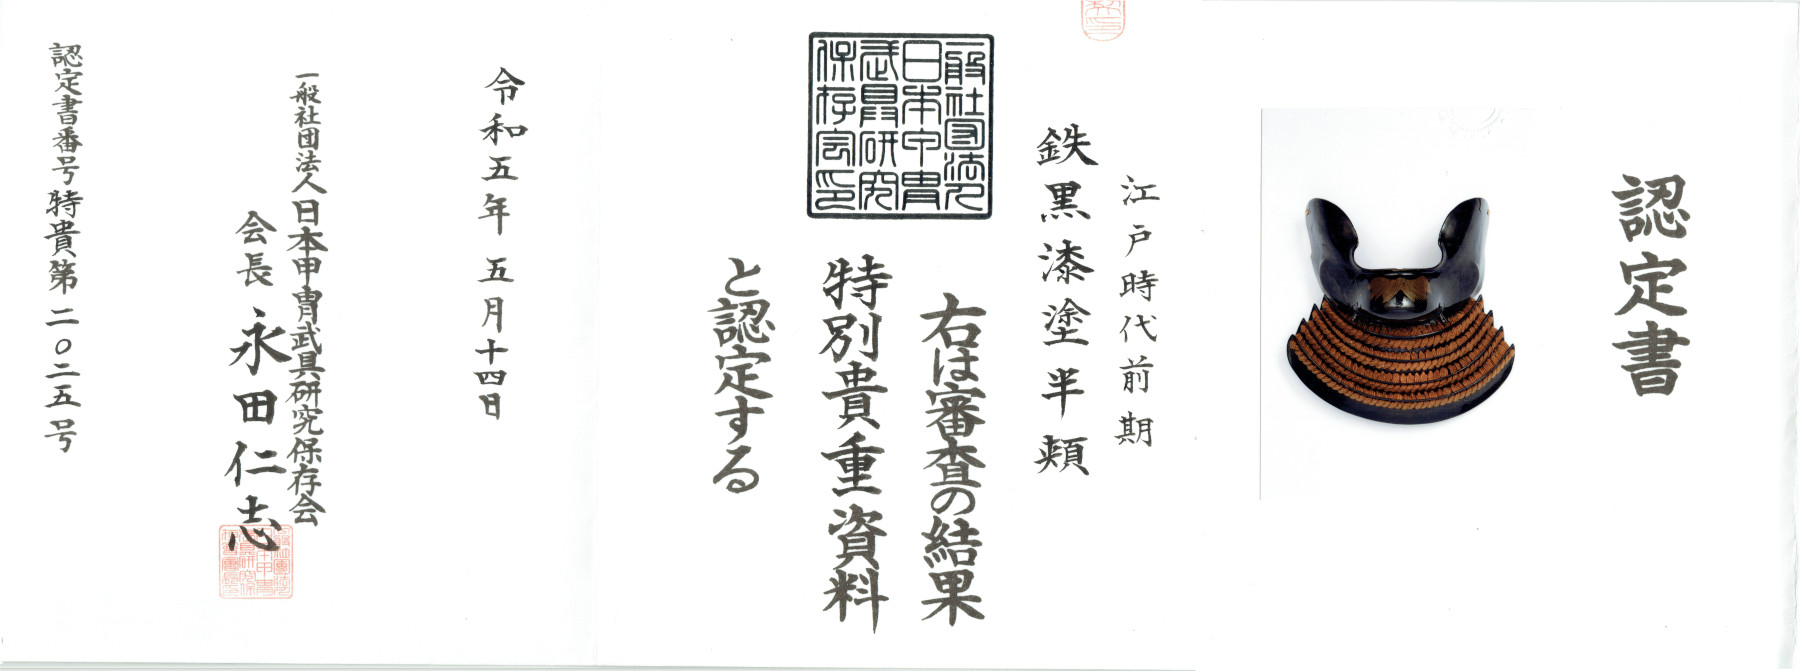 認定書
江戸時代前期
鉄黒漆塗半頬
右は審査の結果
特別貴重資料
と認定する
一般社団法人
日本甲冑
武具研究
保存会印
令和五年五月十四日
一般社団法人日本甲冑武具研究保存会
会長 永田仁志
認定書番号特貴第二〇二五号